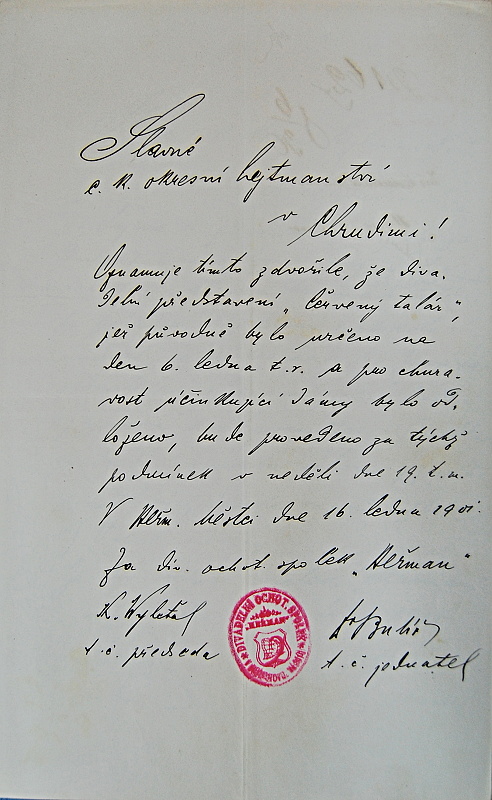 Slavné
c. k. okresní hejtmanství
v Chrudimi!
Oznamuje tímto zdvořile, že diva-
delní představení „Červený talár",
jež původně bylo určeno na
den 6. ledna t. r. a pro chura-
vost účinkující dámy bylo od-
loženo, bude provedeno za týchž
podmínek v neděli dne 19. t. m.
V Heřm. Městci dne 16. ledna 1901.
Za div. ochot. spolek „Heřman"
K.
t. č. předseda
t. č. jednatel
DIVADELNÍ OCHOT. SPOLEK
"HEŘMAN"